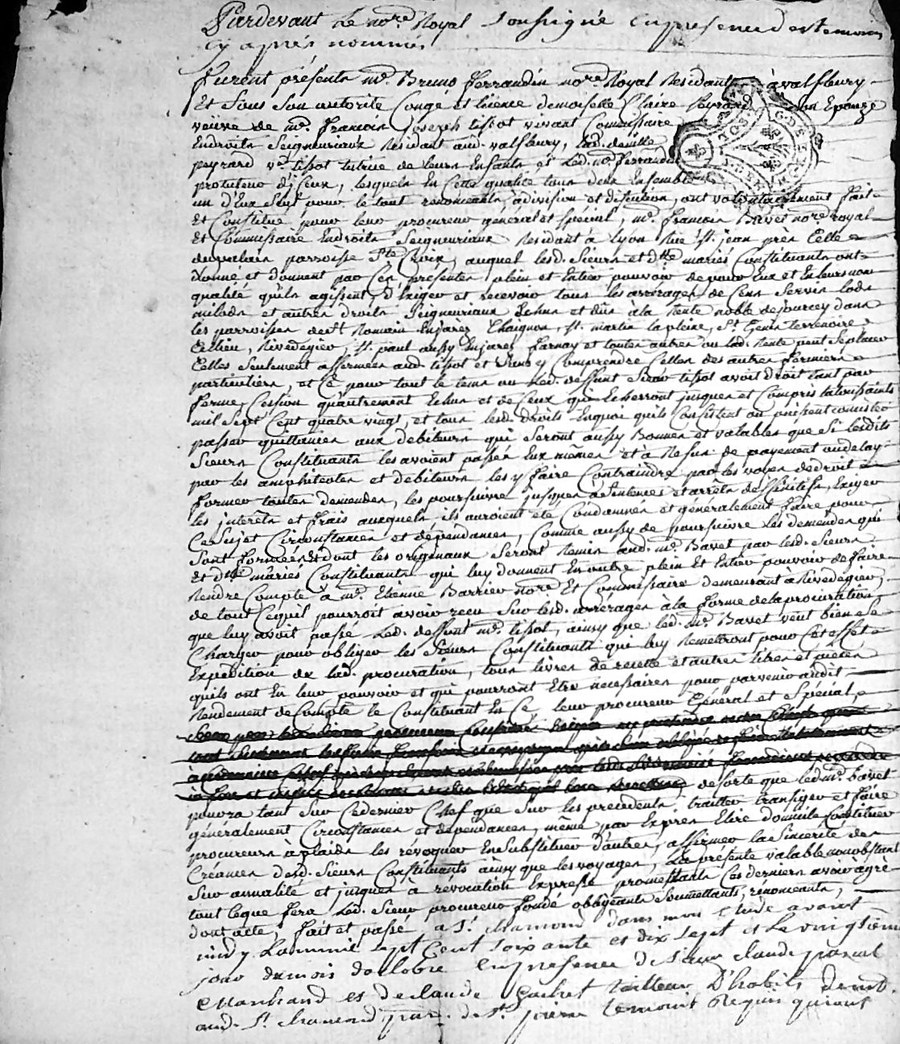 Pardevant le no.re Royal soussigné en presence des temoins
cy apres nommés
furent présents m.e Bruno ferrandin no.re Royal Residant à valfleury
Et sous son autorité Congé et licence demoiselle Claire peyrard son Epouze
veuve de m.e françois Joseph tissot vivant Commissaire
En droits seigneuriaux Residant aud. valfleury, lad. d.elle
peyrard v.e tissot tutrice de leurs Enfants et led. m.e ferrandin
protuteur d'iceux, lesquels En cette qualité tous deux Ensemble
un d'Eux seul pour le tout renonceants a division et discution, ont volontairement fait
Et Constitué pour leur procureur general et special, m.e françois Bavet no.re royal
Et Commissaire En droits Seigneuriaux Residant à Lyon Rue S.t jean près Celle
du palais parroisse S.te Croix, auquel lesd. Sieurs et d.lle mariés Constituants ont
donné et donnent par Ces présentes plein et Entier pouvoir de pour Eux et En leurs nom
qualité qu'ils agissent, d'Exiger et recevoir tous les arrérages de Cens Servis lods
milods et autres droits Seigneuriaux Echus et dus a la Rente noble de jourcey dans
les parroisses de S.t Romain En jarez Chaignon, S.t martin la pleine, S.t Genis terrenoire,
Cellieu, Rivedegier, S.t paul aussy En jarez farnay et toutes autres ou lad. Rente peut s'etendre
Celles seulement affermées aud. tissot et sans y Comprendre Celles des autres fermiers
particuliers, et Ce pour tout le tems ou led. deffunt Sieur tissot avoit droit tant par
ferme, Cession qu'autrement Echus et de Ceux qui Echerront jusques et Compris la toussaints
mil Sept Cent quatre vingt, et tous lesd. droits En quoi qu'ils Consistent ou puissent consister
passer quittances aux debiteurs qui seront aussy Bonnes et valables que si lesdits
Sieurs Constituants les avoient passées Eux memes et a Refus de payement ou delay
par les amphiteotes et débiteurs les y faire Contraindre par les voyes de droit
former toutes demandes, les poursuivre jusques a sentences et arrêts deffinitifs, Exiger
les interêts et frais auxquels ils auroient été Condamnés et generalement faire pour
Ce sujet Circonstances et dépendances, Comme aussy de poursuivre Les demandes qui
Sont formées et dont les originaux Seront Remis aud. m.e Bavet par lesd. Sieurs
et d.lle mariés Constituants qui luy donnent En outre plein et Entier pouvoir de faire
Rendre Compte à m.e Etienne Barrier no.re Et Commissaire demeurant à Rivedegier
de tout Ce qu'il pourroit avoir recu sur lesd. arrérages à la forme de la procuration
que luy avoit passé led. deffunt m.e tissot, ainsy que led. m.e Bavet veut bien Se
Charger pour obliger les Sieurs Constituants qui luy Remettront pour Cet effet
Expedition de lad. procuration, tous livres de recette et autres titres et pieces
qu'ils ont En leur pouvoir et qui pourront Etre necessaires pour parvenir audit
Rendement de Compte le Constituant En Ce leur procureur Général et Spécial,
de sorte que led. m.e Bavet
pourra tant Sur Ce dernier Chef que Sur les precedents, traitter transiger et faire
généralement Circonstances et dépendances, même par Exprès Elire domicile Constituer
procureurs à plaids les révoquer En substituer d'autres, affirmer la Sincérité des
Créances desd. Sieurs Constituants ainsy que les voyages, La présente valable nonobstant
Sur annalité et jusques a révocation Expresse promettants Ces derniers avoir agrée
tout Ce que fera led. Sieur procureur fondé obligeants soumettants, renonceants,
dont acte, fait et passé a S.t chamond dans mon Etude avant
midy L'année sept Cent soixante et dix sept et Le vingtieme
jour du mois d'octobre En presence de sieur claude
Marchand et de claude Tailleur D'habits demt.
aud. S.t chamond par. de S.t pierre temoins Requis qui ont